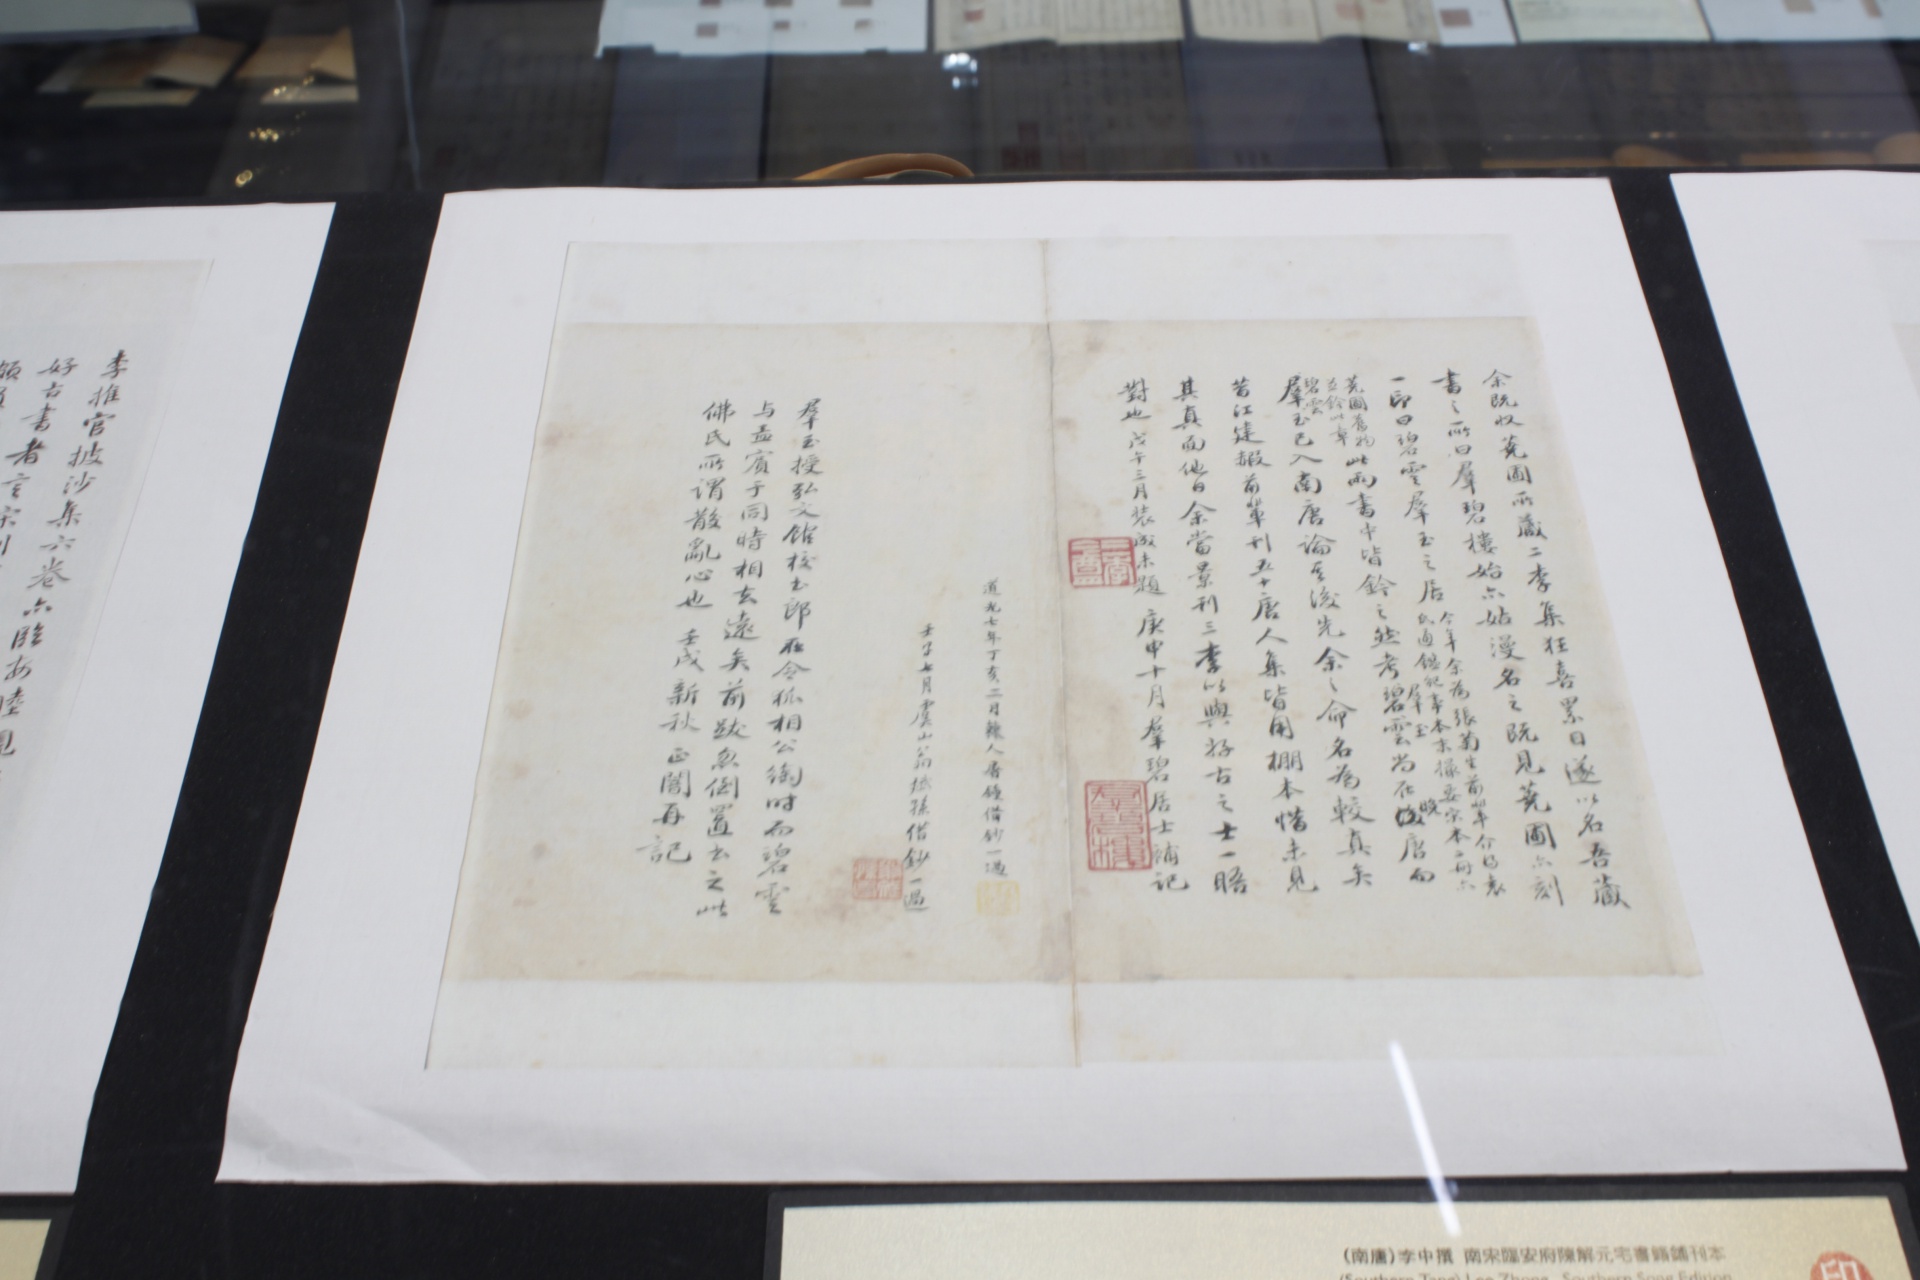 余既收蕘圃所藏二李集狂喜累日遂以名吾藏
書之所曰羣碧樓始亦姑漫名之既見蕘圃亦刻
一印曰碧雲羣玉之居
今年余為張菊生前輩介得袁
氏通鑑紀事本末據宋本二冊亦
羣玉
碧雲尚在晚唐而
蕘圃舊物
並鈐此章
此兩書中皆鈐之然考
碧雲
羣玉已入南唐論其後先余之命名為較真矣
昔江建赮前輩刊五十唐人集皆用棚本惜未見
其真面他日余當景刊三李以與好古之士一晤
對也 戊午三月裝成未題 庚申十月羣碧居士補記
三李盦
羣碧樓
道光七年丁亥二月借鈔一過
壬子七月虞山借鈔一過
羣玉授弘文館校書郎在令狐相公綯時而碧雲
与孟賓于同時相去遠矣前跋忽倒置書之此
佛氏所謂散亂心也 壬戌新秋正闇再記
李推官披沙集六卷亦臨安睦親
好古書者言宋刊
(南唐)李中撰 南宋臨安府陳解元宅書籍鋪刊本
(Southern Tang) Lee Zhong, Southern Song Edition